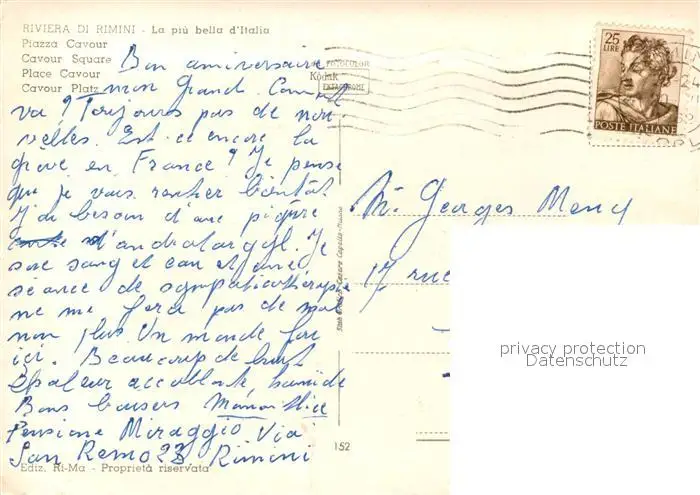 RIVIERA DI RIMINI - La più bella d'Italia
Piazza Cavour
Cavour Square
Place Cavour
Cavour Platz
Kodak
EKTACHROME
25
LIRE
POSTE ITALIANE
Bon anniversaire
mon Grand. Comment
va ? Toujours pas de nou
velles. Est ce encore la
grève en France ? Je pense
que je vais rentrer bientôt
J'ai besoin d'une piqûre
d'
Je
suis sang et eau et une
séance de sympathicothérapie
ne me fera pas de mal
non plus. Un monde fou
ici. Beaucoup de bruit
Chaleur accablante, humide
Bons baisers
Pensione Miraggio Via
San Remo 23 Rimini
Mr Georges
17 rue
privacy protection
Datenschutz
152
Ediz. Ri-Ma - Proprietà riservata